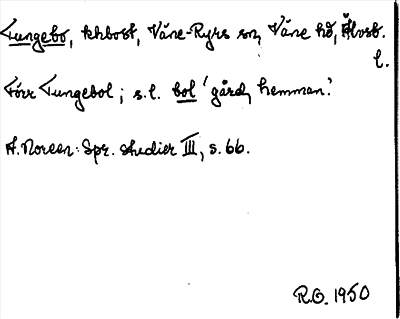 Tungebo, khbost, Väne-Ryrs sn, Väne hd, Älvsb.
l.
Förr Tungebol; s.l. bol 'gård, hemman'.
A. Noreen: Spr. studier III, s. 66.
R.O. 1950